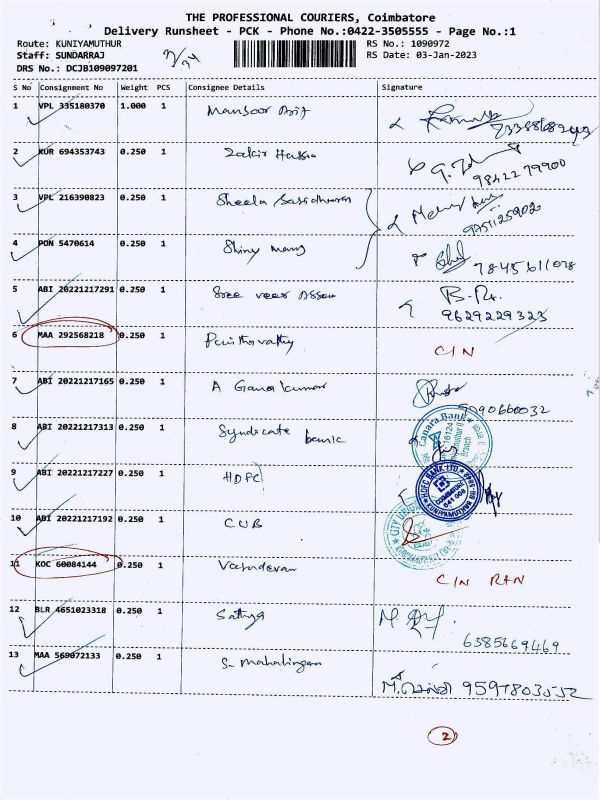 THE PROFESSIONAL COURIERS, Coimbatore
Delivery Runsheet - PCK - Phone No.:0422-3505555 - Page No.:1
Route: KUNIYAMUTHUR RS No.: 1090972
Staff: SUNDARRAJ RS Date: 03-Jan-2023
DRS No.: DCJB109097201
S No Consignment No Weight PCS Consignee Details Signature
1 VPL 335180370 1.000 1 Mansoor
2 KUR 694353743 0.250 1 Zakir 9842279900
3 VPL 216390823 0.250 1 Sheela Sasidharan
4 PON 5470614 0.250 1 Shiny 7845611078
5 ABI 20221217291 0.250 1 Sree B.
9629229323
6 MAA 292568218 0.250 1 CIN
7 ABI 20221217165 0.250 1 A
8 ABI 20221217313 0.250 1 Syndicate bank
Canara Bank
9 ABI 20221217227 0.250 1 HDFC
HDFC BANK LTD.
COIMBATORE
641 008
KUNIYAMUTHUR
10 ABI 20221217192 0.250 1 CUB
11 KOC 60084144 0.250 1 Vasudevan CIN
12 BLR 4651023318 0.250 1 Sathya M.
6385669469
13 MAA 569072133 0.250 1 S- Mahalingam
2